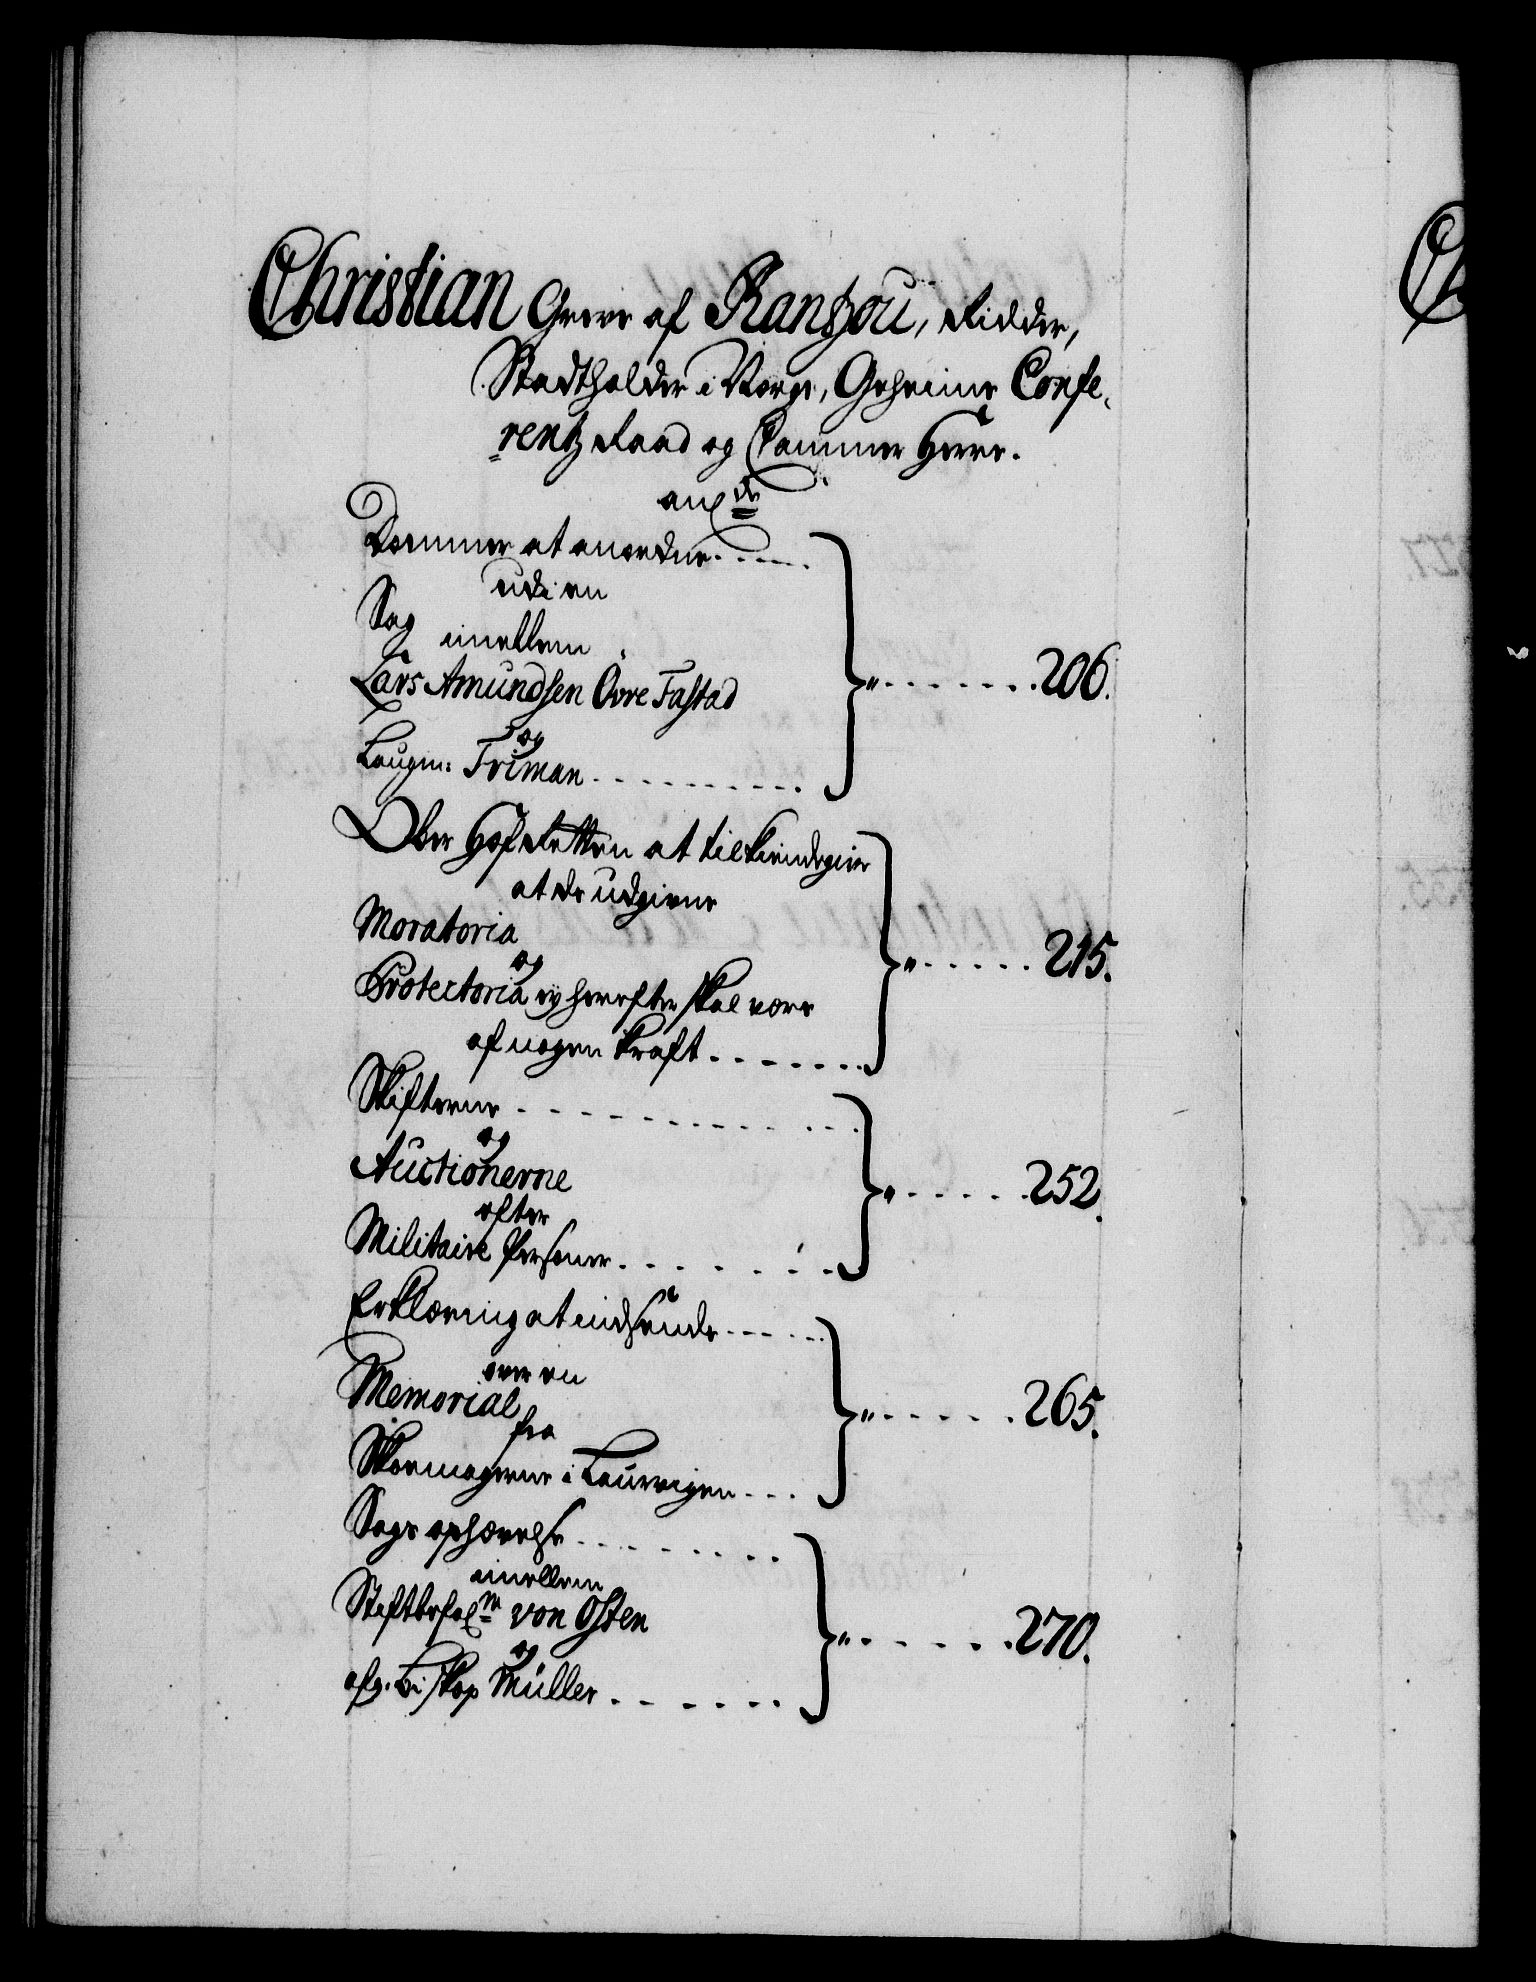 Christian Greve af Rantzou, Ridder,
Stadtholder i Norge, Geheime Confe-
rentz Raad og Cammer Herre.
ang: de
Dommer at anordne
udi en
Sag
imellem
Lars Amundsen Övre Fastad 206.
og
Laugm: Friman
Ober Hof Retten at tilkiendegive
at de udgivne
Moratoria
og 215.
Protectoria ey herefter skal være
af nogen kraft
Skifterne
og
Auctionerne 252.
efter
Militaire Personer
Erklæring at indsende
over en
Memorial 265.
fra
Skoemagerne i Laurvigen
Sags ophævelse
imellem
Stiftbefal: m von Osten 270.
og
afg: Biskop Müller
Ch